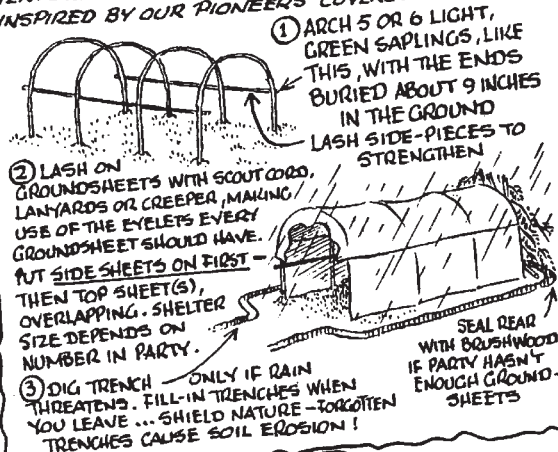 INSPIRED BY OUR PIONEERS'
① ARCH 5 OR 6 LIGHT,
GREEN SAPLINGS, LIKE
THIS, WITH THE ENDS
BURIED ABOUT 9 INCHES
IN THE GROUND
LASH SIDE-PIECES TO
STRENGTHEN
② LASH ON
GROUNDSHEETS WITH SCOUT CORD,
LANYARDS OR CREEPER, MAKING
USE OF THE EYELETS EVERY
GROUNDSHEET SHOULD HAVE.
PUT SIDE SHEETS ON FIRST -
THEN TOP SHEET(S),
OVERLAPPING. SHELTER
SIZE DEPENDS ON
NUMBER IN PARTY.
SEAL REAR
WITH BRUSHWOOD
IF PARTY HASN'T
ENOUGH GROUND-
SHEETS
③ DIG TRENCH ONLY IF RAIN
THREATENS. FILL-IN TRENCHES WHEN
YOU LEAVE ... SHIELD NATURE - FORGOTTEN
TRENCHES CAUSE SOIL EROSION!